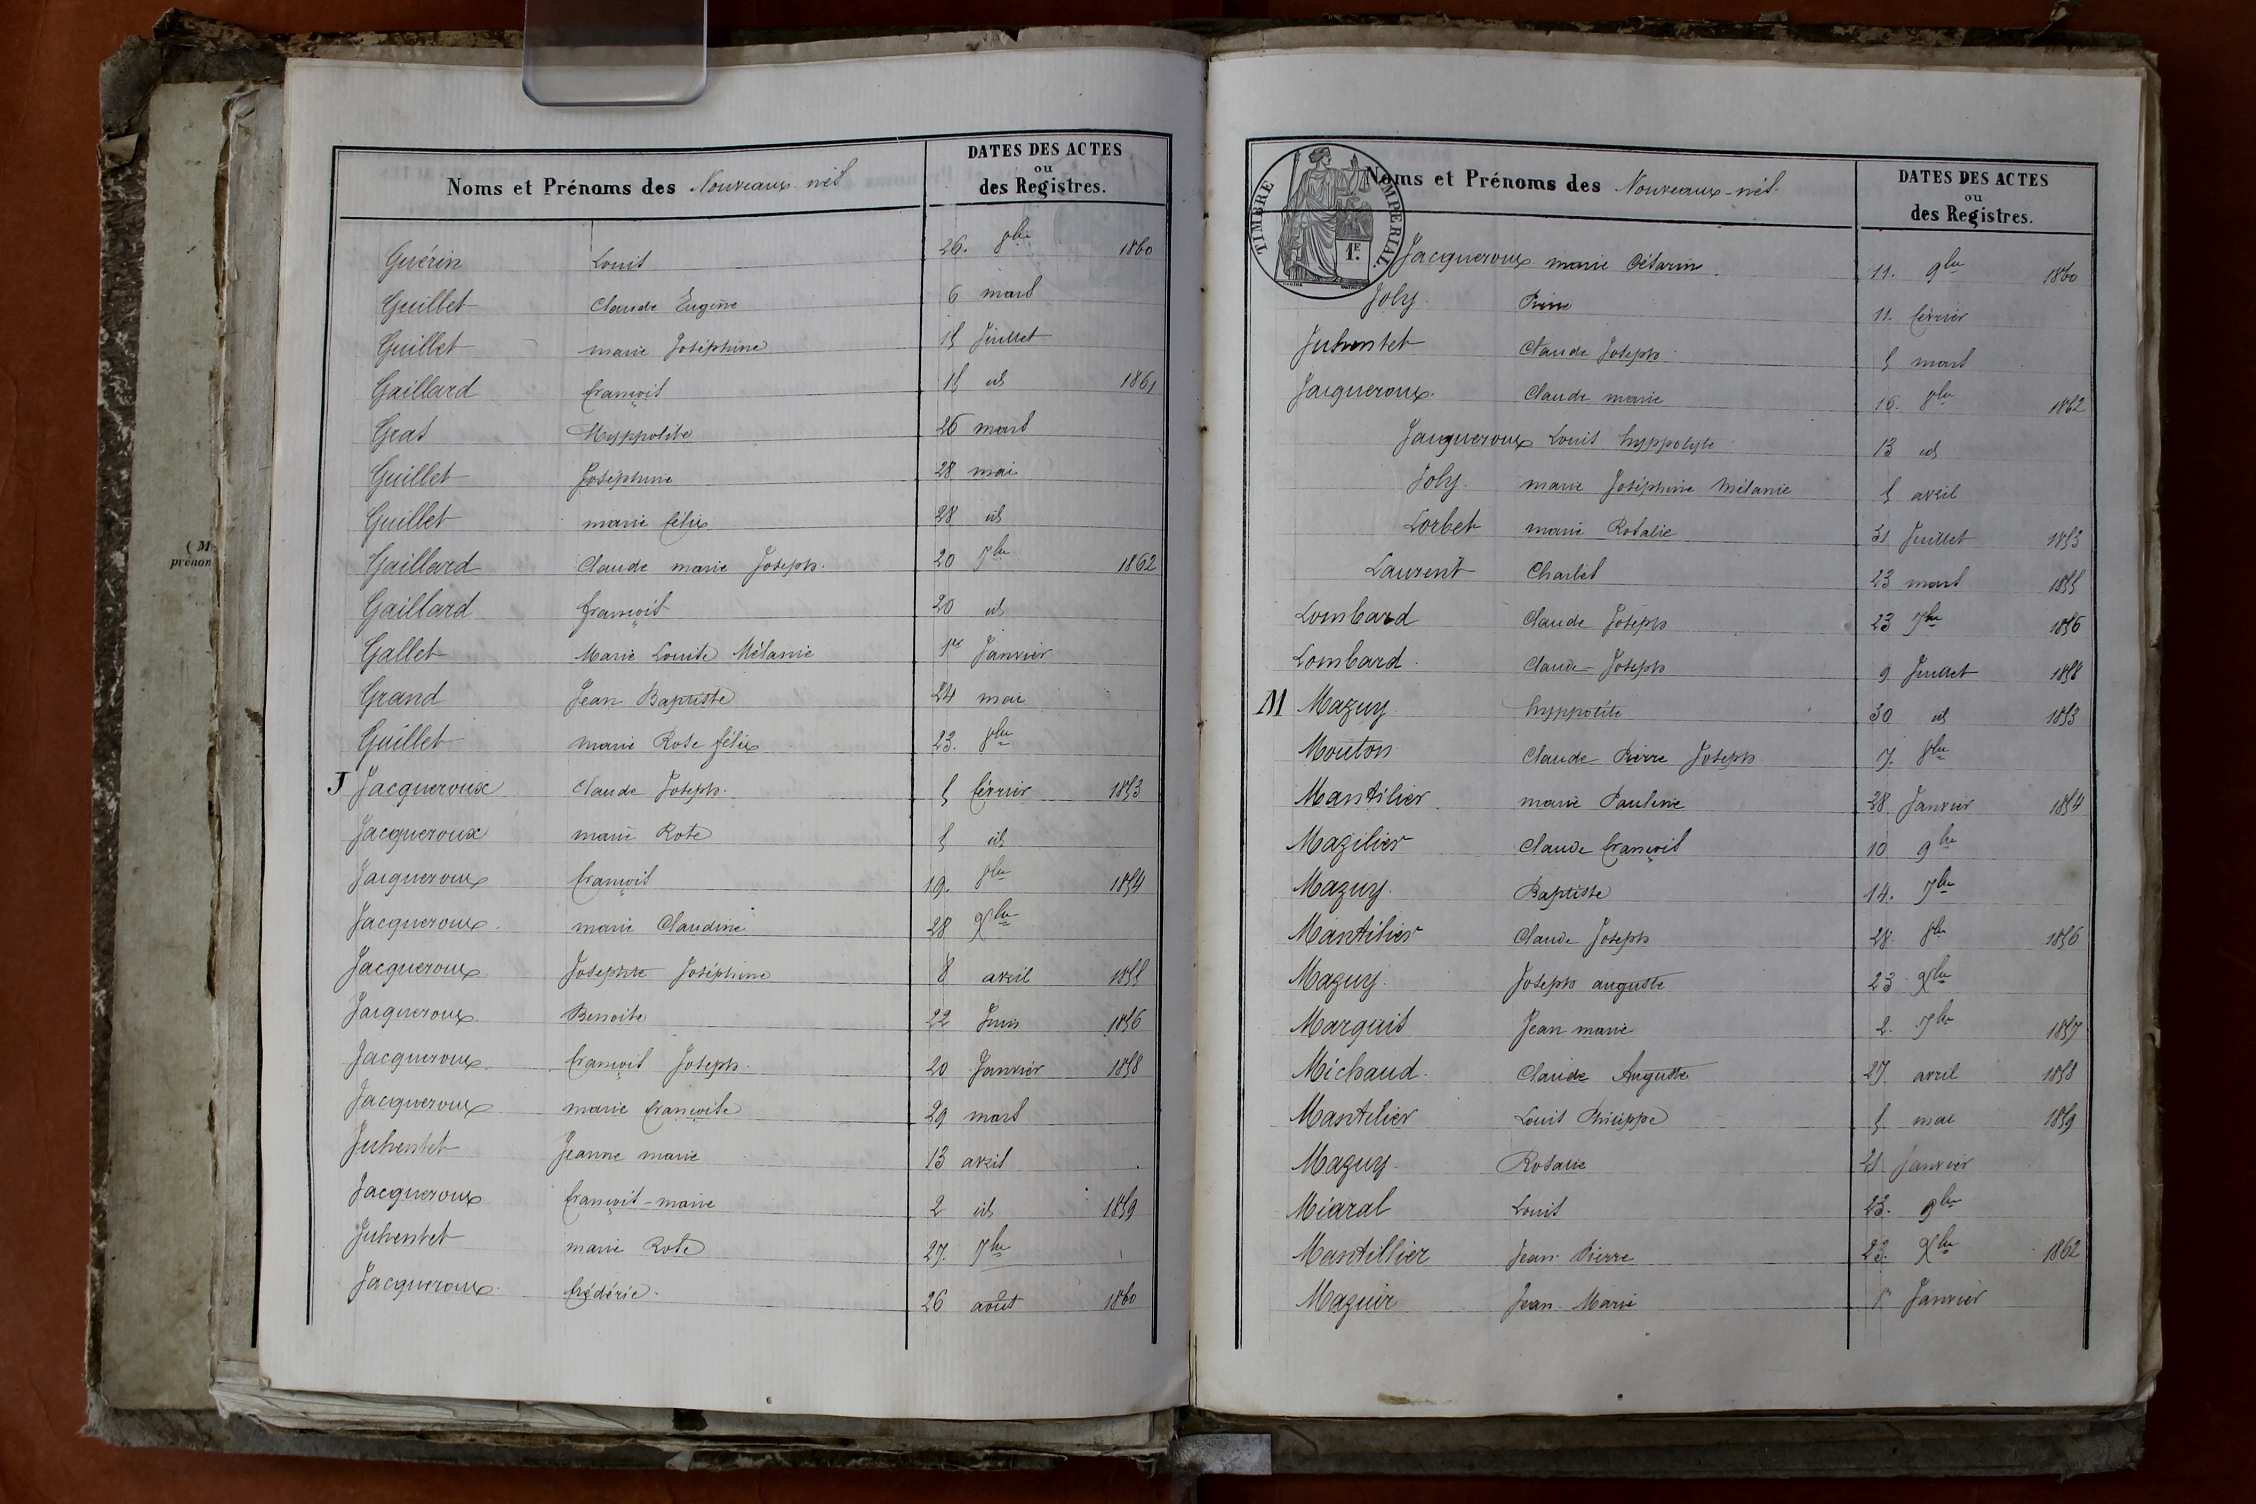 ( M
prénom
Noms et Prénoms des Nouveaux-nés
DATES DES ACTES
ou
des Registres.
Guérin Louis 26. 8bre 1860
Guillet Claude Eugène 6 mars
Guillet marie Joséphine 15 Juillet
Gaillard françois 15 id 1861
Gras Hyppolite 26 mars
Guillet Joséphine 28 mai
Guillet marie félix 28 id
Gaillard Claude marie Joseph. 20 7bre 1862
Gaillard françois 20 id
Gallet Marie Louise Mélanie 1er Janvier
Grand Jean Baptiste 24 mai
Guillet marie Rose félix 23. 8bre
J Jacqueroux Claude Joseph. 5 février 1853
Jacqueroux marie Rose 5 id
Jacqueroux françois 19. 8bre 1854
Jacqueroux. marie Claudine 28 Xbre
Jacqueroux Josephte Joséphine 8 avril 1855
Jacqueroux Benoite 22 Juin 1856
Jacqueroux françois Joseph. 20 Janvier 1858
Jacqueroux marie françoise 29 mars
Juhentet Jeanne marie 13 avril
Jacqueroux françois-marie 2 id 1859
Juhentet marie Rose 27. 7bre
Jacqueroux. frédéric. 26 août 1860
TIMBRE IMPERIAL.
1E.
Noms et Prénoms des Nouveaux-nés.
DATES DES ACTES
ou
des Registres.
Jacqueroux marie Césarin 11. 9bre 1860
Joly. Pierre 11. février
Juhentet Claude Joseph 5 mars
Jacqueroux. Claude marie 16. 8bre 1862
Jacqueroux Louis hyppolyte 13 id
Joly. marie Joséphine Mélanie 5 avril
Lorbet marie Rosalie 31 Juillet 1853
Laurent Charles 23 mars 1855
Lombard Claude Joseph 23 7bre 1856
Lombard. Claude-Joseph 9 Juillet 1858
M Mazuy hyppolite 30 id 1853
Mouton Claude-Pierre Joseph 7. 8bre
Mantilier marie Pauline 28 Janvier 1854
Mazilier Claude françois 10 9bre
Mazuy. Baptiste 14. 7bre
Mantilier Claude Joseph 28. 8bre 1856
Mazuy. Joseph auguste 23 Xbre
Marquis Jean marie 2. 7bre 1857
Michaud. Claude Auguste 27. avril 1858
Mantelier Louis Philippe 5. mai 1859
Mazuy. Rosalie 21 Janvier
Miaral Louis 23. 9bre
Mantillier Jean Pierre 23. Xbre 1862
Mazuir Jean Marie Janvier